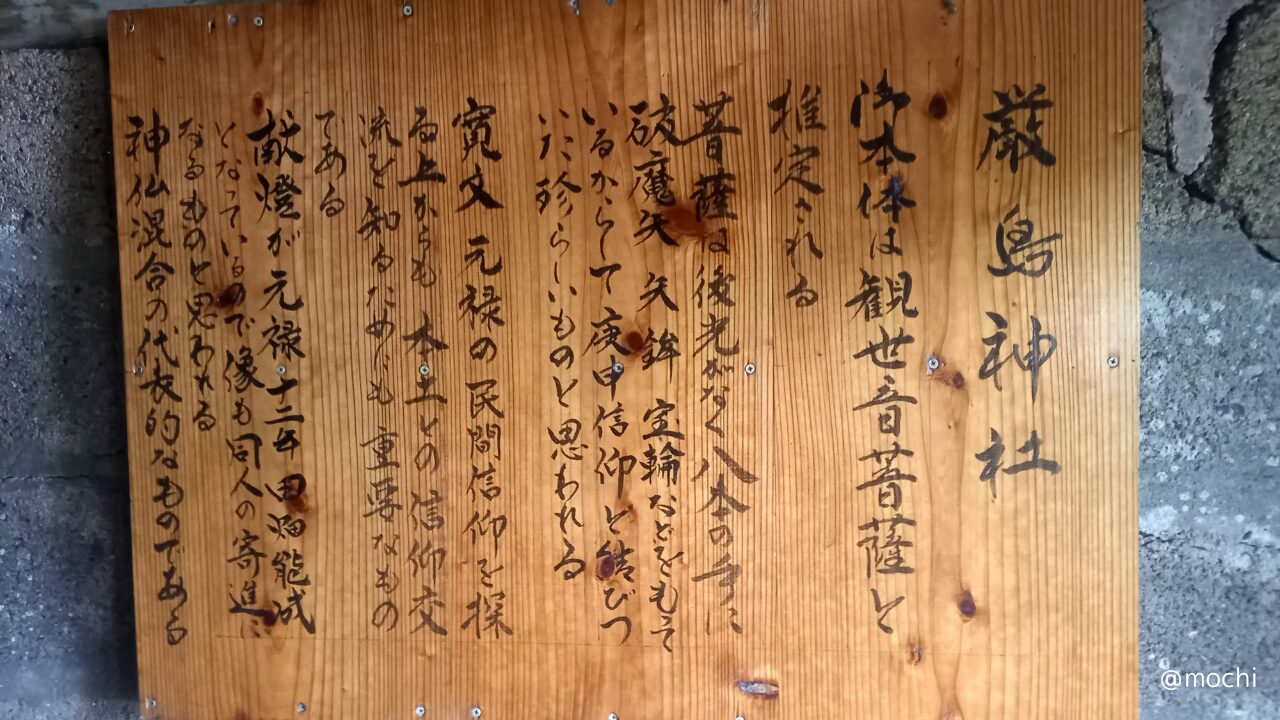 厳島神社
御本体は観世音菩薩と
推定される
菩薩は後光がなく八本の手に
破魔矢 矢 鉾 宝輪などをもって
いるからして庚申信仰と結びつ
いた珍らしいものと思われる
寛文 元禄の民間信仰を探
る上からも 本土との信仰交
流を知るためにも 重要なもの
である
献燈が元禄十二年田畑能成
となっているので像も同人の寄進に
なるものと思われる
神仏混合の代表的なものであらう
@mochi